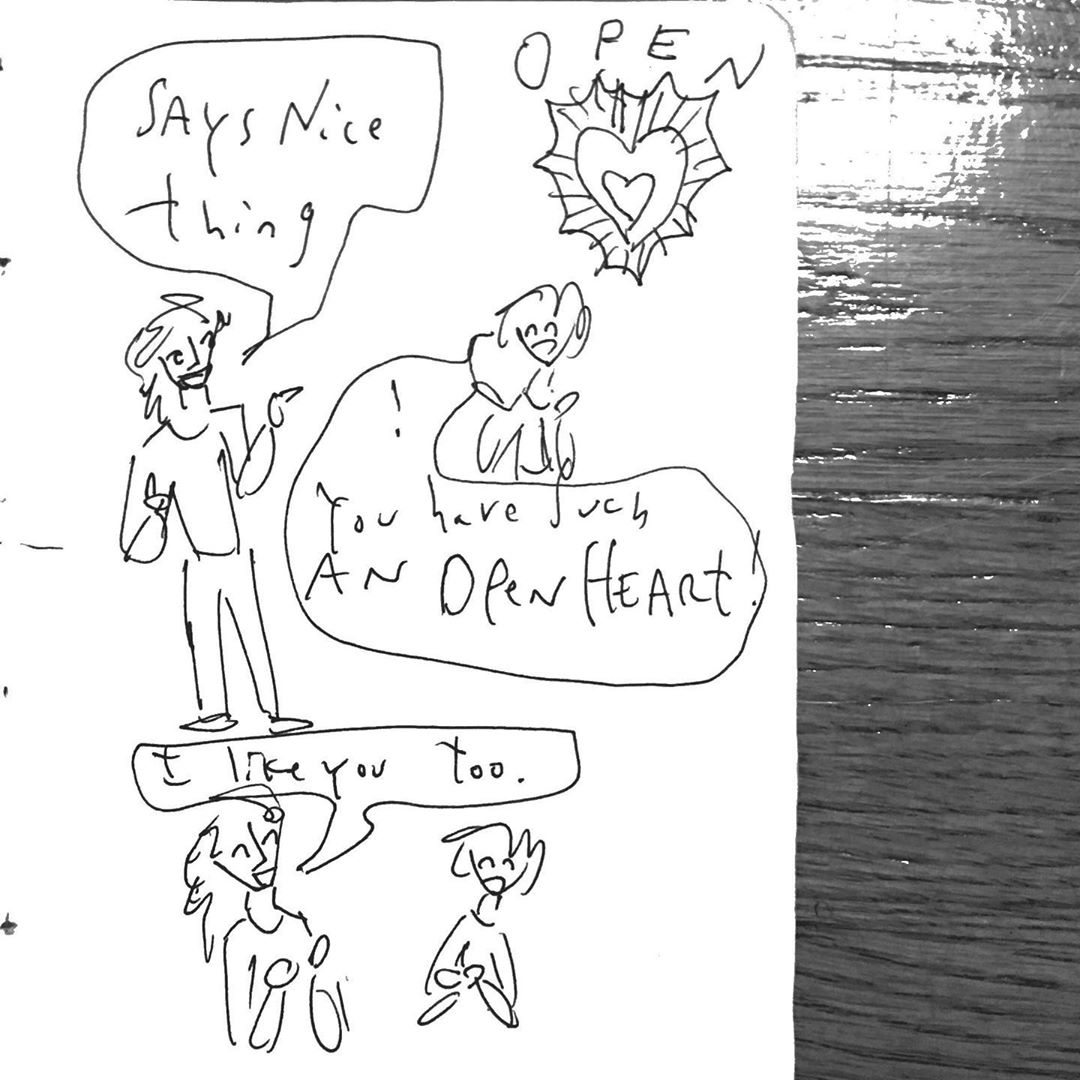 OPEN
SAYS Nice
thing
!
You have such
AN OPEN HEART!
I like you too.